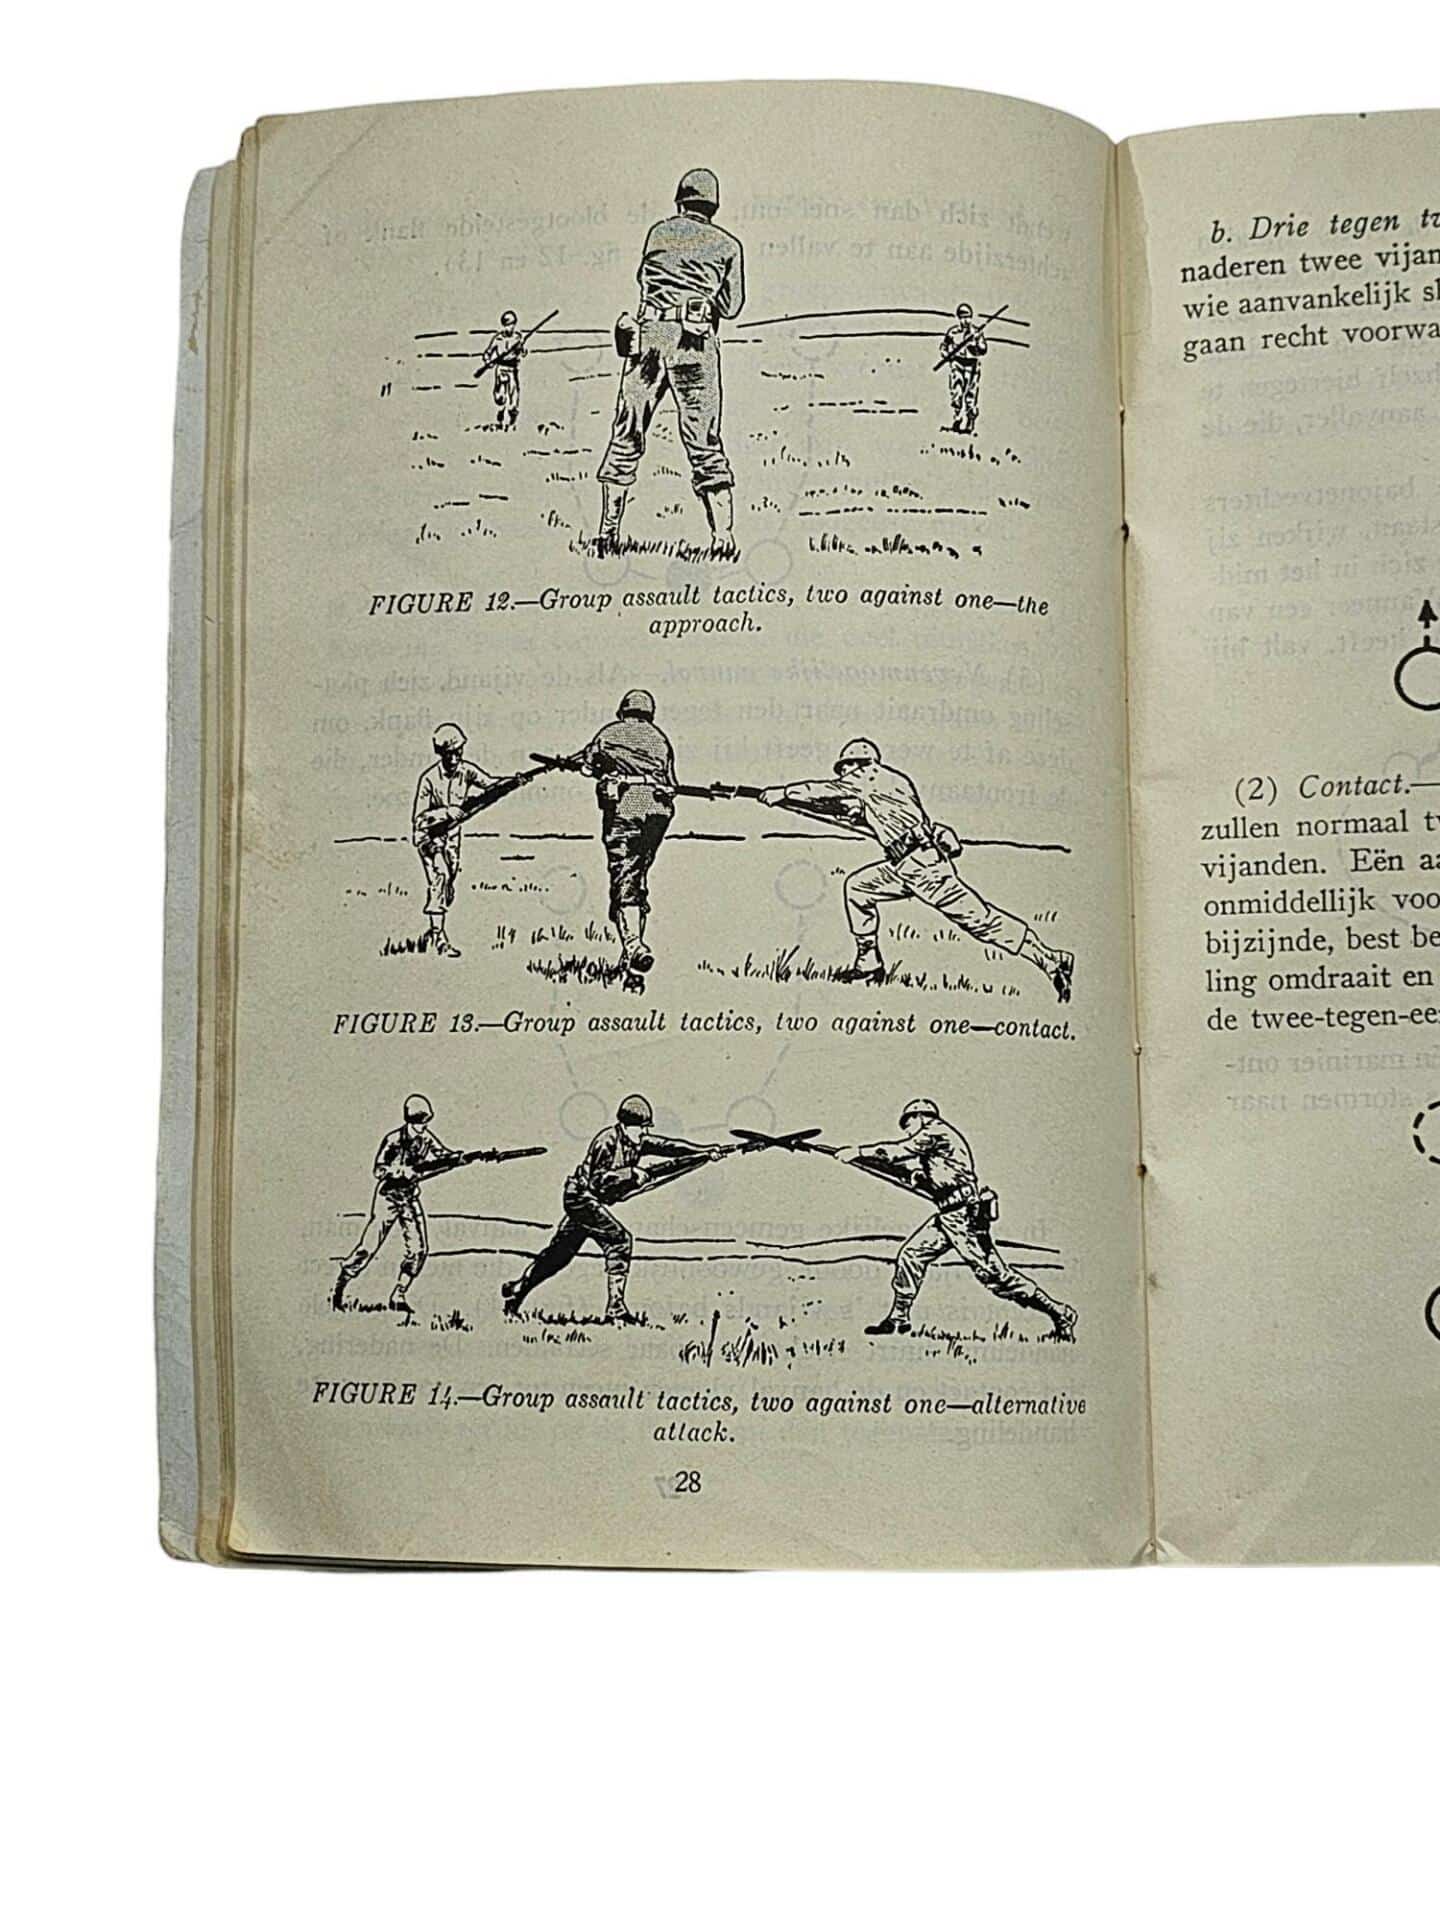 FIGURE 12.—Group assault tactics, two against one—the
approach.
FIGURE 13.—Group assault tactics, two against one—contact.
FIGURE 14.—Group assault tactics, two against one—alternative
attack.
28
b. Drie tegen
naderen twee
wie aanvankelijk
gaan recht
(2) Contact.—
zullen normaal
vijanden. Eën
onmiddellijk
bijzijnde, best
ling omdraait en